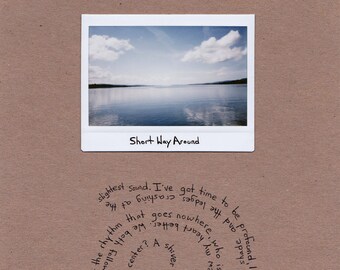 Short Way Around
slightest sound. I've got time to be profound, I
and the ledges crashing at the
the rhythm that goes nowhere, who is
my heart better. We both
center? A shiver